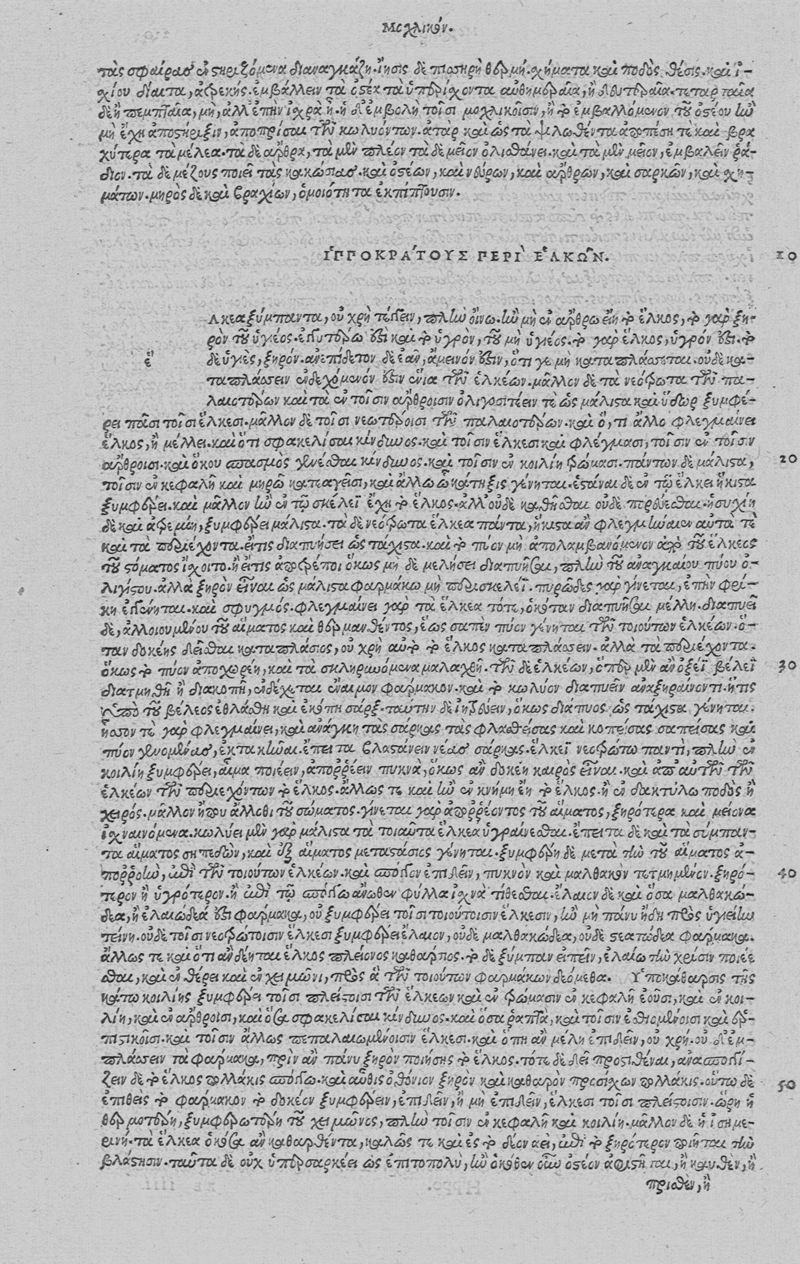 Μοχλικόν.
τὰς σφαίρας ἐνστηριζόμενα διαναγκάζῃ. ἴησις δὲ πυοποιητικὴ σχήματα καὶ ποδὸς θέσις. καὶ ἰ-
χίου δίαιτα, ἀτρεκής. ἐμβάλλειν τὰ ὀστέα τὰ ὑπερίχοντα αὐθημεραῖα, ἢ δευτεραῖα· τεταρταῖα
δὲ ἢ πεμπταῖα, μὴ, ἀλλ' ἐπὴν ἰσχνὰ ᾖ. ἡ δὲ ἐμβολὴ τοῖσι μοχλικοῖσιν, ἢ τὸ ἐμβαλλόμενον τοῦ ὀστέου ἢν
μὴ ἔχῃ ἀποστήριξιν, ἀποπρίσαι τῶν κωλυόντων. ἀτὰρ καὶ ὣς τὰ ψιλωθέντα ἀποπέσῃ τε καὶ βρα
χύτερα τὰ μέλεα. τὰ δὲ ἄρθρα, τὰ μὲν πλέον τὰ δὲ μεῖον ὀλισθάνει. καὶ τὰ μὲν μεῖον, ἐμβαλεῖν ῥᾴ-
διον. τὰ δὲ μέζους ποιεῖ τὰς κακώσιας. καὶ ὀστέων, καὶ νεύρων, καὶ ἄρθρων, καὶ σαρκῶν, καὶ σχη-
μάτων. μηρὸς δὲ καὶ βραχίων, ὁμοιότητα ἐκπίπτουσιν.
ἹΠΠΟΚΡΑΤΟΥΣ ΠΕΡΙ ἙΛΚΩΝ. 10
λκεα ξύμπαντα, οὐ χρὴ τέγγειν, πλὴν οἴνῳ. ἢν μὴ ἐν ἄρθρῳ ἔῃ τὸ ἕλκος, τὸ γὰρ ξη-
ρὸν τοῦ ὑγιέος. ἐγγυτέρω ἐστὶ καὶ τὸ ὑγρὸν, τοῦ μὴ ὑγιέος. τὸ γὰρ ἕλκος, ὑγρόν ἐστι. τὸ
ἑ δὲ ὑγιὲς, ξηρόν. ἀνεπίδετον δὲ ἐᾶν, ἄμεινόν ἐστιν, ὅτι γε μὴ καταπλάσσεται. οὐδὲ κα-
ταπλάσσειν ἐνδεχόμενόν ἐστιν ἔνια τῶν ἑλκέων. μᾶλλον δὲ τὰ νεότρωτα τῶν πα-
λαιοτέρων καὶ τὰ ἐν τοῖσιν ἄρθροισιν ὀλιγοσιτίειν τε ὡς μάλιστα καὶ ὕδωρ ξυμφέ-
ρει πᾶσι τοῖσι ἕλκεσι. μᾶλλον δὲ τοῖσι νεωτέροισι τῶν παλαιοτέρων καὶ ὅ, τι ἄλλο φλεγμαίνει
ἕλκος, ἢ μέλλει. καὶ ὅτι σφακελίσαι κίνδυνος. καὶ τοῖσιν ἕλκεσι καὶ φλέγμασι, τοῖσιν ἐν τοῖσιν
ἄρθροισι. καὶ ὅκου σπασμὸς γενέσθαι κίνδυνος. καὶ τοῖσιν ἐν κοιλίῃ τρώμασι. πάντων δὲ μάλιστα, 20
τοῖσιν ἐν κεφαλῇ καὶ μηρῷ καταγεῖσι, καὶ ἄλλῳ ᾧ κάτηξις γένηται. ἑστάναι δὲ ἐν τῷ ἕλκει ἥκιστα
ξυμφέρει. καὶ μᾶλλον ἢν ἐν τῷ σκέλει ἔχῃ τὸ ἕλκος. ἀλλ' οὐδὲ καθῆσθαι οὐδὲ πορεύεσθαι. ἡσυχίη
δὲ καὶ ἀτρεμίη, ξυμφέρει μάλιστα. τὰ δὲ νεότρωτα ἕλκεα πάντα, ἥκιστα ἂν φλεγμήναιεν αὐτά τε
καὶ τὰ περιέχοντα. εἴ τις διαπυήσει ὡς τάχιστα. καὶ τὸ πύον μὴ ἀπολαμβανόμενον ἀπὸ τοῦ ἕλκεος
τοῦ στόματος ἴσχοιτο. ἢ εἴ τις ἀποτρέποι ὅκως μὴ δὲ μελήσει διαπυῆσαι, πλὴν τοῦ ἀναγκαίου πύου ὀ-
λιγίστου. ἀλλὰ ξηρὸν εἶναι ὡς μάλιστα φαρμάκῳ μὴ περισκελεῖ. πυρῶδες γὰρ γίνεται, ἐπὴν φρί-
κη ἐγγένηται. καὶ σφυγμός. φλεγμαίνει γὰρ τὰ ἕλκεα τότε, ὁκόταν διαπυῆσαι μέλλῃ. διαπυεῖ
δὲ, ἀλλοιουμένου τοῦ αἵματος καὶ θερμανθέντος, ἕως σαπὲν πύον γένηται τῶν τοιούτων ἑλκέων. ὅ-
ταν δοκέῃς δεῖσθαι καταπλάσιος, οὐ χρὴ αὐτὸ τὸ ἕλκος καταπλάσσειν. ἀλλὰ τὰ περιέχοντα.
ὅκως τὸ πύον ἀποχωρέῃ, καὶ τὰ σκληρυνόμενα μαλαχθῇ. τῶν δὲ ἑλκέων, ὅπερ μὲν ἂν ὀξεῖ βέλει 30
διατμηθῇ ἢ διακοπῇ, ἐνδέχεται ἔναιμον φάρμακον. καὶ τὸ κωλύον διαπυεῖν ἀναξηραίνον τι. ἥτις
ὑπὸ τοῦ βέλεος ἐθλάσθη καὶ ἐκόπη σάρξ. ταύτην δὲ ἰητρεύειν, ὅκως διάπυος ὡς τάχιστα γένηται.
ἧσσόν τε γὰρ φλεγμαίνει, καὶ ἀνάγκη τὰς σάρκας τὰς φλασθείσας καὶ κοπείσας σαπείσας καὶ
πύον γενομένας, ἐκτακῆναι. ἔπειτα βλαστάνειν νέας σάρκας. ἕλκεϊ νεοτρώτῳ παντὶ, πλὴν ἐν
κοιλίῃ ξυμφέρει, αἷμα ποιέειν, ἀπορρέειν πυκνὰ, ὅκως ἂν δοκέῃ καιρὸς εἶναι. καὶ ἀπ' αὐτῶν τῶν
ἑλκέων τῶν περιεχόντων τὸ ἕλκος. ἄλλως τε καὶ ἢν ἐν κνήμῃ ἔῃ τὸ ἕλκος. ἢ ἐν δακτύλῳ ποδὸς ἢ
χειρός. μᾶλλον ἤπου ἄλλοθι τοῦ σώματος. γίνεται γὰρ ἀπορρέοντος τοῦ αἵματος, ξηρότερα καὶ μείονα
ἰσχναινόμενα. κωλύει μὲν γὰρ μάλιστα τὰ τοιαῦτα ἕλκεα ὑγιαίνεσθαι. ἔπειτα δὲ καὶ τὰ σύμπαν-
τα αἵματος σηπεδὼν, καὶ ἐξ αἵματος μετάστασιος γένηται. ξυμφέρει δὲ μετὰ τὴν τοῦ αἵματος ἀ-
πορροὴν, ἐπὶ τῶν τοιούτων ἑλκέων. καὶ σπόγγον ἐπιδεῖν, πυκνὸν καὶ μαλθακὸν τετμημένον. ξηρό- 40
τερον ἢ ὑγρότερον. ἢ ἐπὶ τῷ σπόγγῳ ἄνωθεν φύλλα ἰσχνὰ τίθεσθαι. ἔλαιον δὲ καὶ ὅσα μαλθακώ-
δεα, ἢ ἐλαιώδεά ἐστι φάρμακα, οὐ ξυμφέρει τοῖσι τοιούτοισιν ἕλκεσιν, ἢν μὴ πάνυ ἤδη πρὸς ὑγιείην
τείνῃ. οὐδὲ τοῖσι νεοτρώτοισιν ἕλκεσι ξυμφέρει ἔλαιον, οὐδὲ μαλθακώδεα, οὐδὲ στεατώδεα φάρμακα.
ἄλλως τε καὶ ὅτι ἂν δέηται ἕλκος πλείονος καθάρσιος. τὸ δὲ ξύμπαν εἰπεῖν, ἐλαίῳ τὴν χρίσιν ποιέε
σθαι, καὶ ἐν θέρει καὶ ἐν χειμῶνι, πρὸς ἃ τῶν τοιούτων φαρμάκων δεόμεθα. Ὑποκάθαρσις τῆς
κάτω κοιλίης ξυμφέρει τοῖσι πλείστοισι τῶν ἑλκέων καὶ ἐν τρώμασιν ἐν κεφαλῇ ἐοῦσι, καὶ ἐν κοι-
λίῃ, καὶ ἐν ἄρθροισι, καὶ ὅσα σφακελίσαι κίνδυνος. καὶ ὅσα ῥαπτὰ, καὶ τοῖσιν ἐσθιομένοισι καὶ ἑρ-
πιστικοῖσι. καὶ τοῖσιν ἄλλως πεπαλαιωμένοισιν ἕλκεσι. καὶ ὅπη ἂν μέλῃ ἐπιδεῖν, οὐ χρή. οὐ δ' ἐμ-
πλάσσειν τὰ φάρμακα, πρὶν ἂν πάνυ ξηρὸν ποιήσῃς τὸ ἕλκος. τότε δὲ δεῖ προστιθέναι, ἀνασπογγί-
ζειν δὲ τὸ ἕλκος πολλάκις σπόγγῳ. καὶ αὖθις ὀθόνιον ξηρὸν καὶ καθαρὸν προσίσχων πολλάκις. οὕτω δὲ 50
ἐπιθεὶς τὸ φάρμακον τὸ δοκέον ξυμφέρειν, ἐπιδεῖν, ἢ μὴ ἐπιδεῖν, ἕλκεσι τοῖσι πλείστοισιν. ὥρη ἡ
θερμοτέρη, ξυμφερωτέρη τοῦ χειμῶνος, πλὴν τοῖσιν ἐν κεφαλῇ καὶ κοιλίῃ. μᾶλλον δὲ ἡ ἰσημε-
ρινή. τὰ ἕλκεα ὁκόσα ἂν καθαρθέντα, καλῶς τε καὶ ἐς τὸ δέον ἀεὶ, ἐπὶ τὸ ξηρότερον ποιῆται τὴν
βλάστησιν. ταῦτα δὲ οὐχ ὑπερσαρκέει ὡς ἐπιτοπολὺ, ἢν ὁκόθεν οὖν ὀστέον ἀποστῇ, ἢ καυθὲν, ἢ
πρισθὲν, ἢ